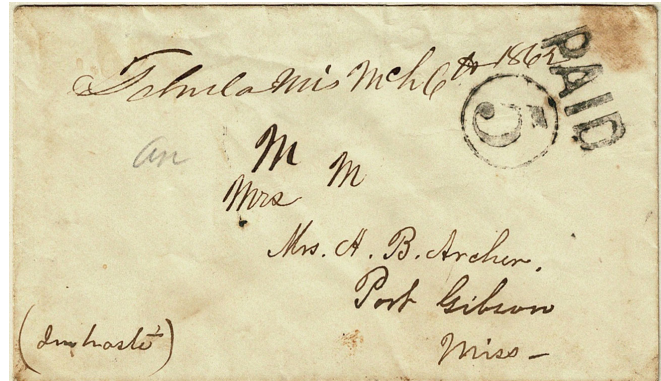 Tchula Mis Mch 6th 1862
PAID
5
an
M
Mrs M
Mrs. H. B. Archer.
Port Gibson
Miss -